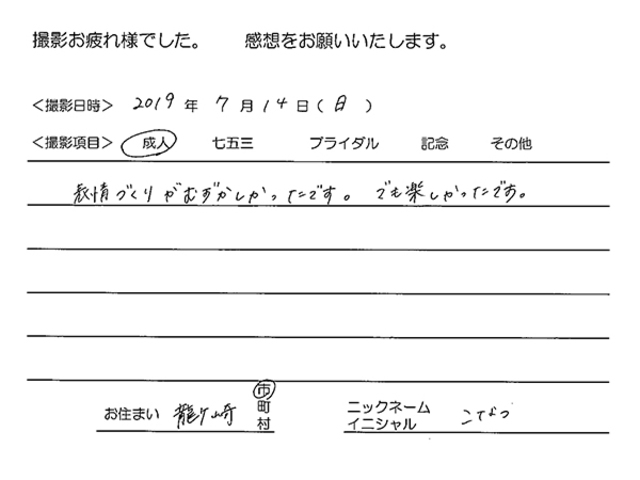 撮影お疲れ様でした。 感想をお願いいたします。
<撮影日時> 2019 年 7 月 14 日 ( 日 )
<撮影項目> 成人 七五三 ブライダル 記念 その他
表情づくりがむずかしかったです。 でも楽しかったです。
お住まい 龍ヶ崎 市 町 村
ニックネーム イニシャル こなつ